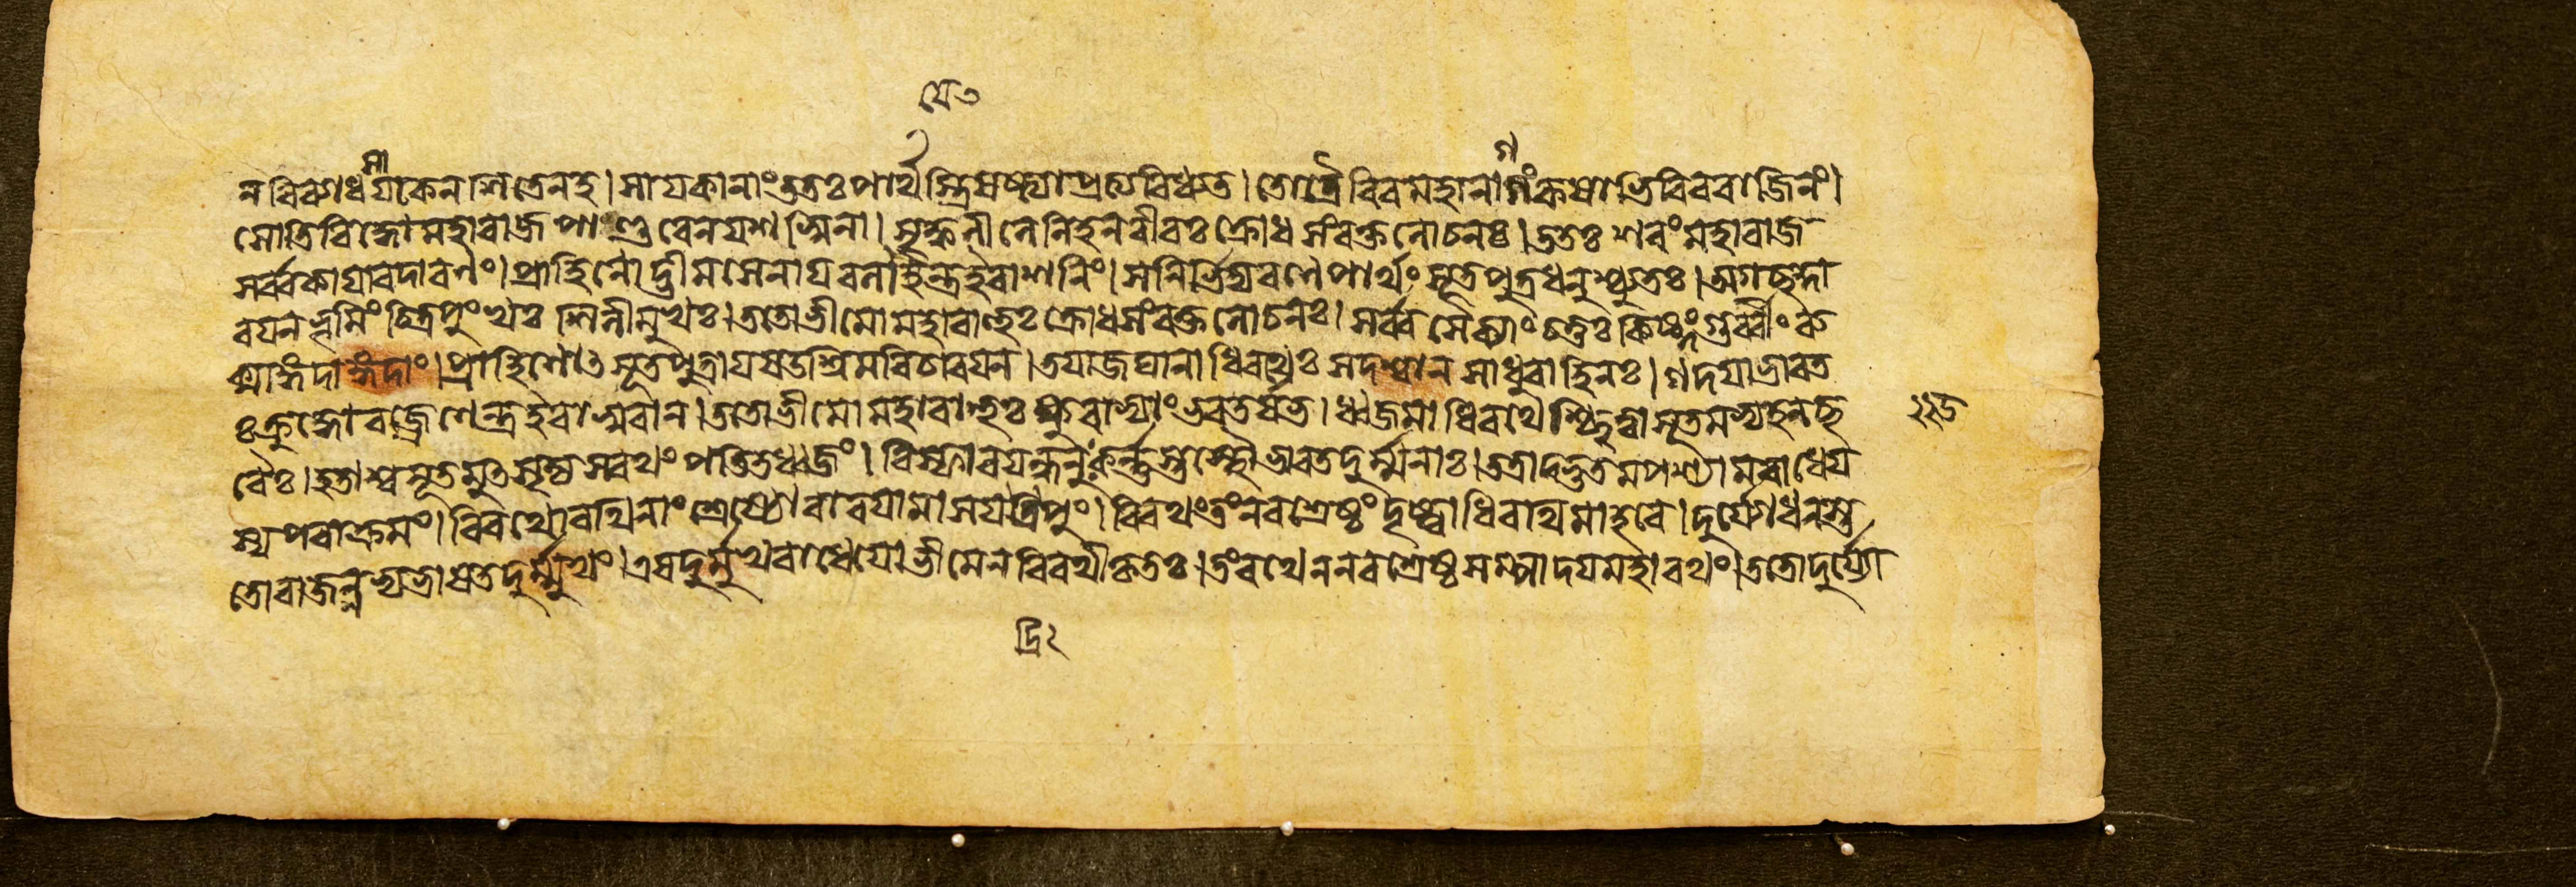 ঘে ৩
ন বিব্যাধ সায়কেন শিতেন হ। সায়কানাং ততঃ পার্থস্ত্রিষষ্ট্যা প্রত্যবিধ্যত। তোত্রৈরিব মহানাগং কশাভিরিব বাজিনং।
সোতিবিদ্ধো মহারাজ পাণ্ডবেন যশস্বিনা। সৃক্কনী লেলিহন্ বীরঃ ক্রোধসংরক্তলোচনঃ। ততঃ শরং মহারাজ
সর্ব্বকায়াবদারণং। প্রাহিণোদ্ভীমসেনায় বলায়েন্দ্র ইবাশনিং। স নির্ভিদ্য রণে পার্থং সূতপুত্রধনুশ্চ্যুতঃ। অগচ্ছদ্দা
রয়ন্ ভূমিং চিত্রপুংখঃ শিলীমুখঃ। ততো ভীমো মহাবাহুঃ ক্রোধসংরক্তলোচনঃ। সর্ব্বসৈক্যাং চতুঃকিষ্কুং গুর্ব্বীং রু
ক্মাঙ্গদাং গদাং। প্রাহিণোৎ সূতপুত্রায় ষডশ্রিমবিচারয়ন্। তয়া জঘানাধিরথেঃ সদশ্বান্ সাধুবাহিনঃ। গদয়া ভারত
ঃ ক্রুদ্ধো বজ্রেণেন্দ্র ইবাসুরান্। ততো ভীমো মহাবাহুঃ ক্ষুরাভ্যাং ভরতর্ষভ। ধ্বজমাধিরথেশ্ছিত্ত্বা সূতমভ্যহনচ্ছ
রৈঃ। হতাশ্বসূতমুৎসৃজ্য স রথং পতিতধ্বজং। বিস্ফারয়ন্ধনুঃ কর্ণস্তস্থৌ ভারত দুর্ম্মনাঃ। তত্রাদ্ভুতমপশ্যাম রাধেয়
স্য পরাক্রমং। বিরথো রথিনাং শ্রেষ্ঠো বারয়ামাস যদ্রিপুং। বিরথং তং নরশ্রেষ্ঠং দৃষ্ট্বাধিরথিমাহবে। দুর্যোধনস্ত
তো রাজন্নভ্যভাষত দুর্ম্মুখং। এষ দুর্মুখ রাধেয়ো ভীমেন বিরথীকৃতঃ। তং রথেন নরশ্রেষ্ঠ সম্পাদয় মহারথং। ততো দুর্য্যো